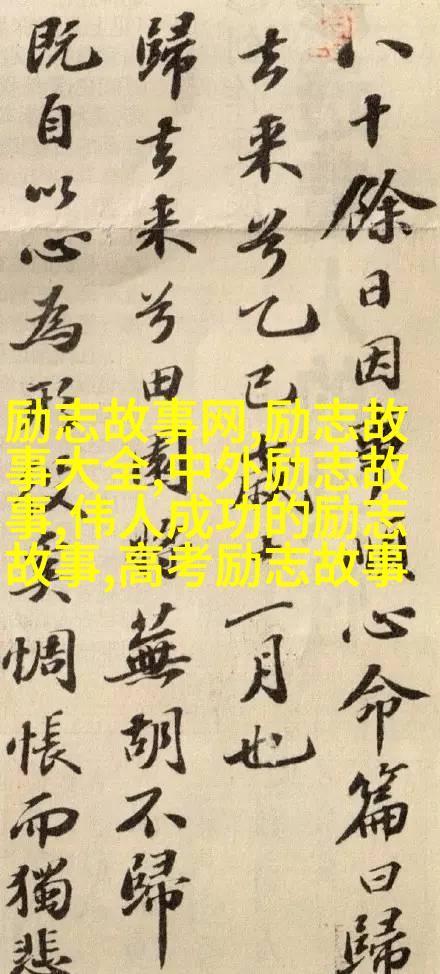 八十餘日因事順心命篇曰歸
去来兮乙巳歲十一月也
歸去来兮田園将蕪胡不歸
既自以心為形役奚惆悵而獨悲
励志故事网,励志故
事大全,中外励志故
事,伟人成功的励志
故事,高考励志故事